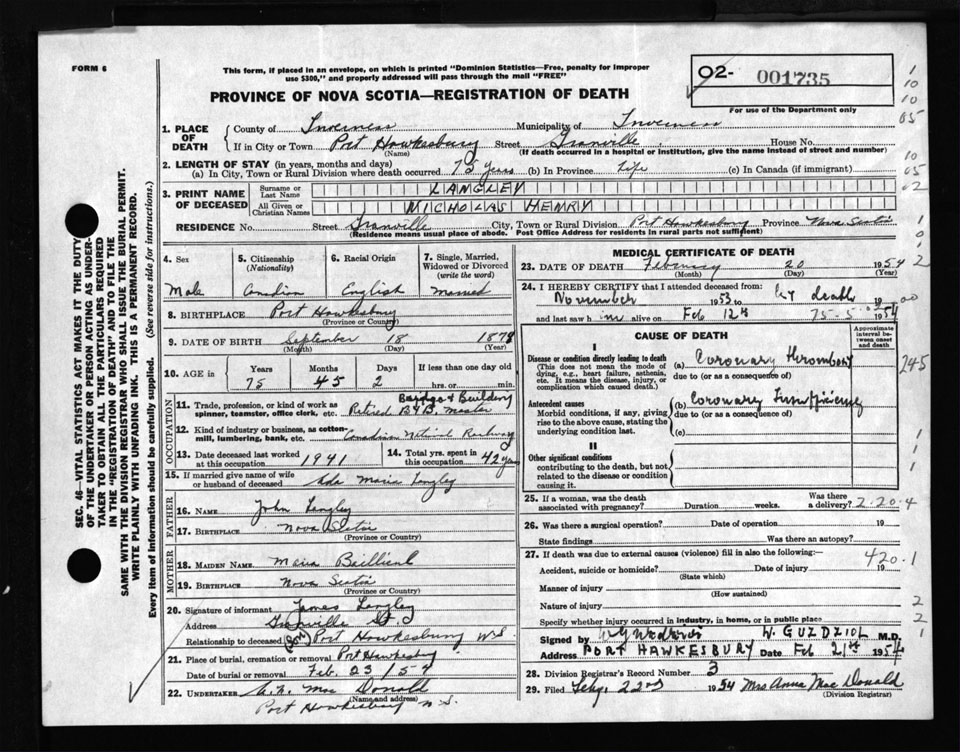 FORM 6
This form, if placed in an envelope, on which is printed "Dominion Statistics—Free, penalty for improper
use $300," and properly addressed will pass through the mail "FREE"
PROVINCE OF NOVA SCOTIA—REGISTRATION OF DEATH
02- 001735
For use of the Department only
1. PLACE OF DEATH
County of Inverness Municipality of Inverness
If in City or Town Port Hawkesbury Street Granville House No.
(Name) (If death occurred in a hospital or institution, give the name instead of street and number)
2. LENGTH OF STAY (in years, months and days)
(a) In City, Town or Rural Division where death occurred 75 years (b) In Province Life (c) In Canada (if immigrant)
3. PRINT NAME OF DECEASED
Surname or Last Name LANGLEY
All Given or Christian Names NICHOLAS HENRY
RESIDENCE No. Street Granville City, Town or Rural Division Port Hawkesbury Province Nova Scotia
(Residence means usual place of abode. Post Office Address for residents in rural parts not sufficient)
4. Sex
Male
5. Citizenship
(Nationality)
Canadian
6. Racial Origin
English
7. Single, Married, Widowed or Divorced
(write the word)
Married
8. BIRTHPLACE Port Hawkesbury
(Province or Country)
9. DATE OF BIRTH September 18 1878
(Month) (Day) (Year)
10. AGE in
Years Months Days If less than one day old
75 2 hrs. or min.
OCCUPATION
11. Trade, profession, or kind of work as spinner, teamster, office clerk, etc. Bridge & Building
Retired B&B. Master
12. Kind of industry or business, as cotton-mill, lumbering, bank, etc. Canadian National Railway
13. Date deceased last worked at this occupation 1941
14. Total yrs. spent in this occupation 42 years
15. If married give name of wife or husband of deceased Ada Maria Langley
FATHER
16. NAME John Langley
17. BIRTHPLACE Nova Scotia
(Province or Country)
MOTHER
18. MAIDEN NAME Maria
19. BIRTHPLACE Nova Scotia
(Province or Country)
20. Signature of informant James Langley
Address Granville St
Relationship to deceased (Son) Port Hawkesbury N.S.
21. Place of burial, cremation or removal Port Hawkesbury
Date of burial or removal Feb. 23/54
22. UNDERTAKER Mac Donald
(Name and address)
Port Hawkesbury N.S.
MEDICAL CERTIFICATE OF DEATH
23. DATE OF DEATH February 20 1954
(Month) (Day) (Year)
24. I HEREBY CERTIFY that I attended deceased from:
November 1953 to death 19
and last saw him alive on Feb 12th 1954
75-5
CAUSE OF DEATH
Approximate interval between onset and death
I
Disease or condition directly leading to death
(This does not mean the mode of dying, e.g., heart failure, asthenia, etc. It means the disease, injury, or complication which caused death.)
(a) Coronary Thrombosis
due to (or as a consequence of)
Antecedent causes
Morbid conditions, if any, giving rise to the above cause, stating the underlying condition last.
(b) Coronary Insufficiency
due to (or as a consequence of)
(c)
II
Other significant conditions
contributing to the death, but not related to the disease or condition causing it.
25. If a woman, was the death associated with pregnancy? Duration weeks. Was there a delivery?
2-20-4
26. Was there a surgical operation? Date of operation 19
State findings Was there an autopsy?
27. If death was due to external causes (violence) fill in also the following:
420.1
Accident, suicide or homicide? Date of injury 19
(State which)
Manner of injury
(How sustained)
Nature of injury
Specify whether injury occurred in industry, in home, or in public place
Signed by W. GUZDZIOL M.D.
Address PORT HAWKESBURY Date Feb 21st 1954
28. Division Registrar's Record Number 3
29. Filed Feby. 22nd 1954 Mrs Anna Mac Donald
(Division Registrar)
SEC. 46—VITAL STATISTICS ACT MAKES IT THE DUTY
OF THE UNDERTAKER OR PERSON ACTING AS UNDER-
TAKER TO OBTAIN ALL THE PARTICULARS REQUIRED
IN THE "REGISTRATION OF DEATH" AND TO FILE THE
SAME WITH THE DIVISION REGISTRAR WHO SHALL ISSUE THE BURIAL PERMIT.
WRITE PLAINLY WITH UNFADING INK. THIS IS A PERMANENT RECORD.
Every item of information should be carefully supplied. (See reverse side for instructions.)